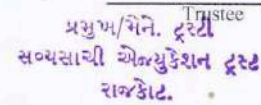 Trustee
પ્રમુખ/મેને. ટ્રસ્ટી
સવ્યસાચી એજ્યુકેશન ટ્રસ્ટ
રાજકોટ.